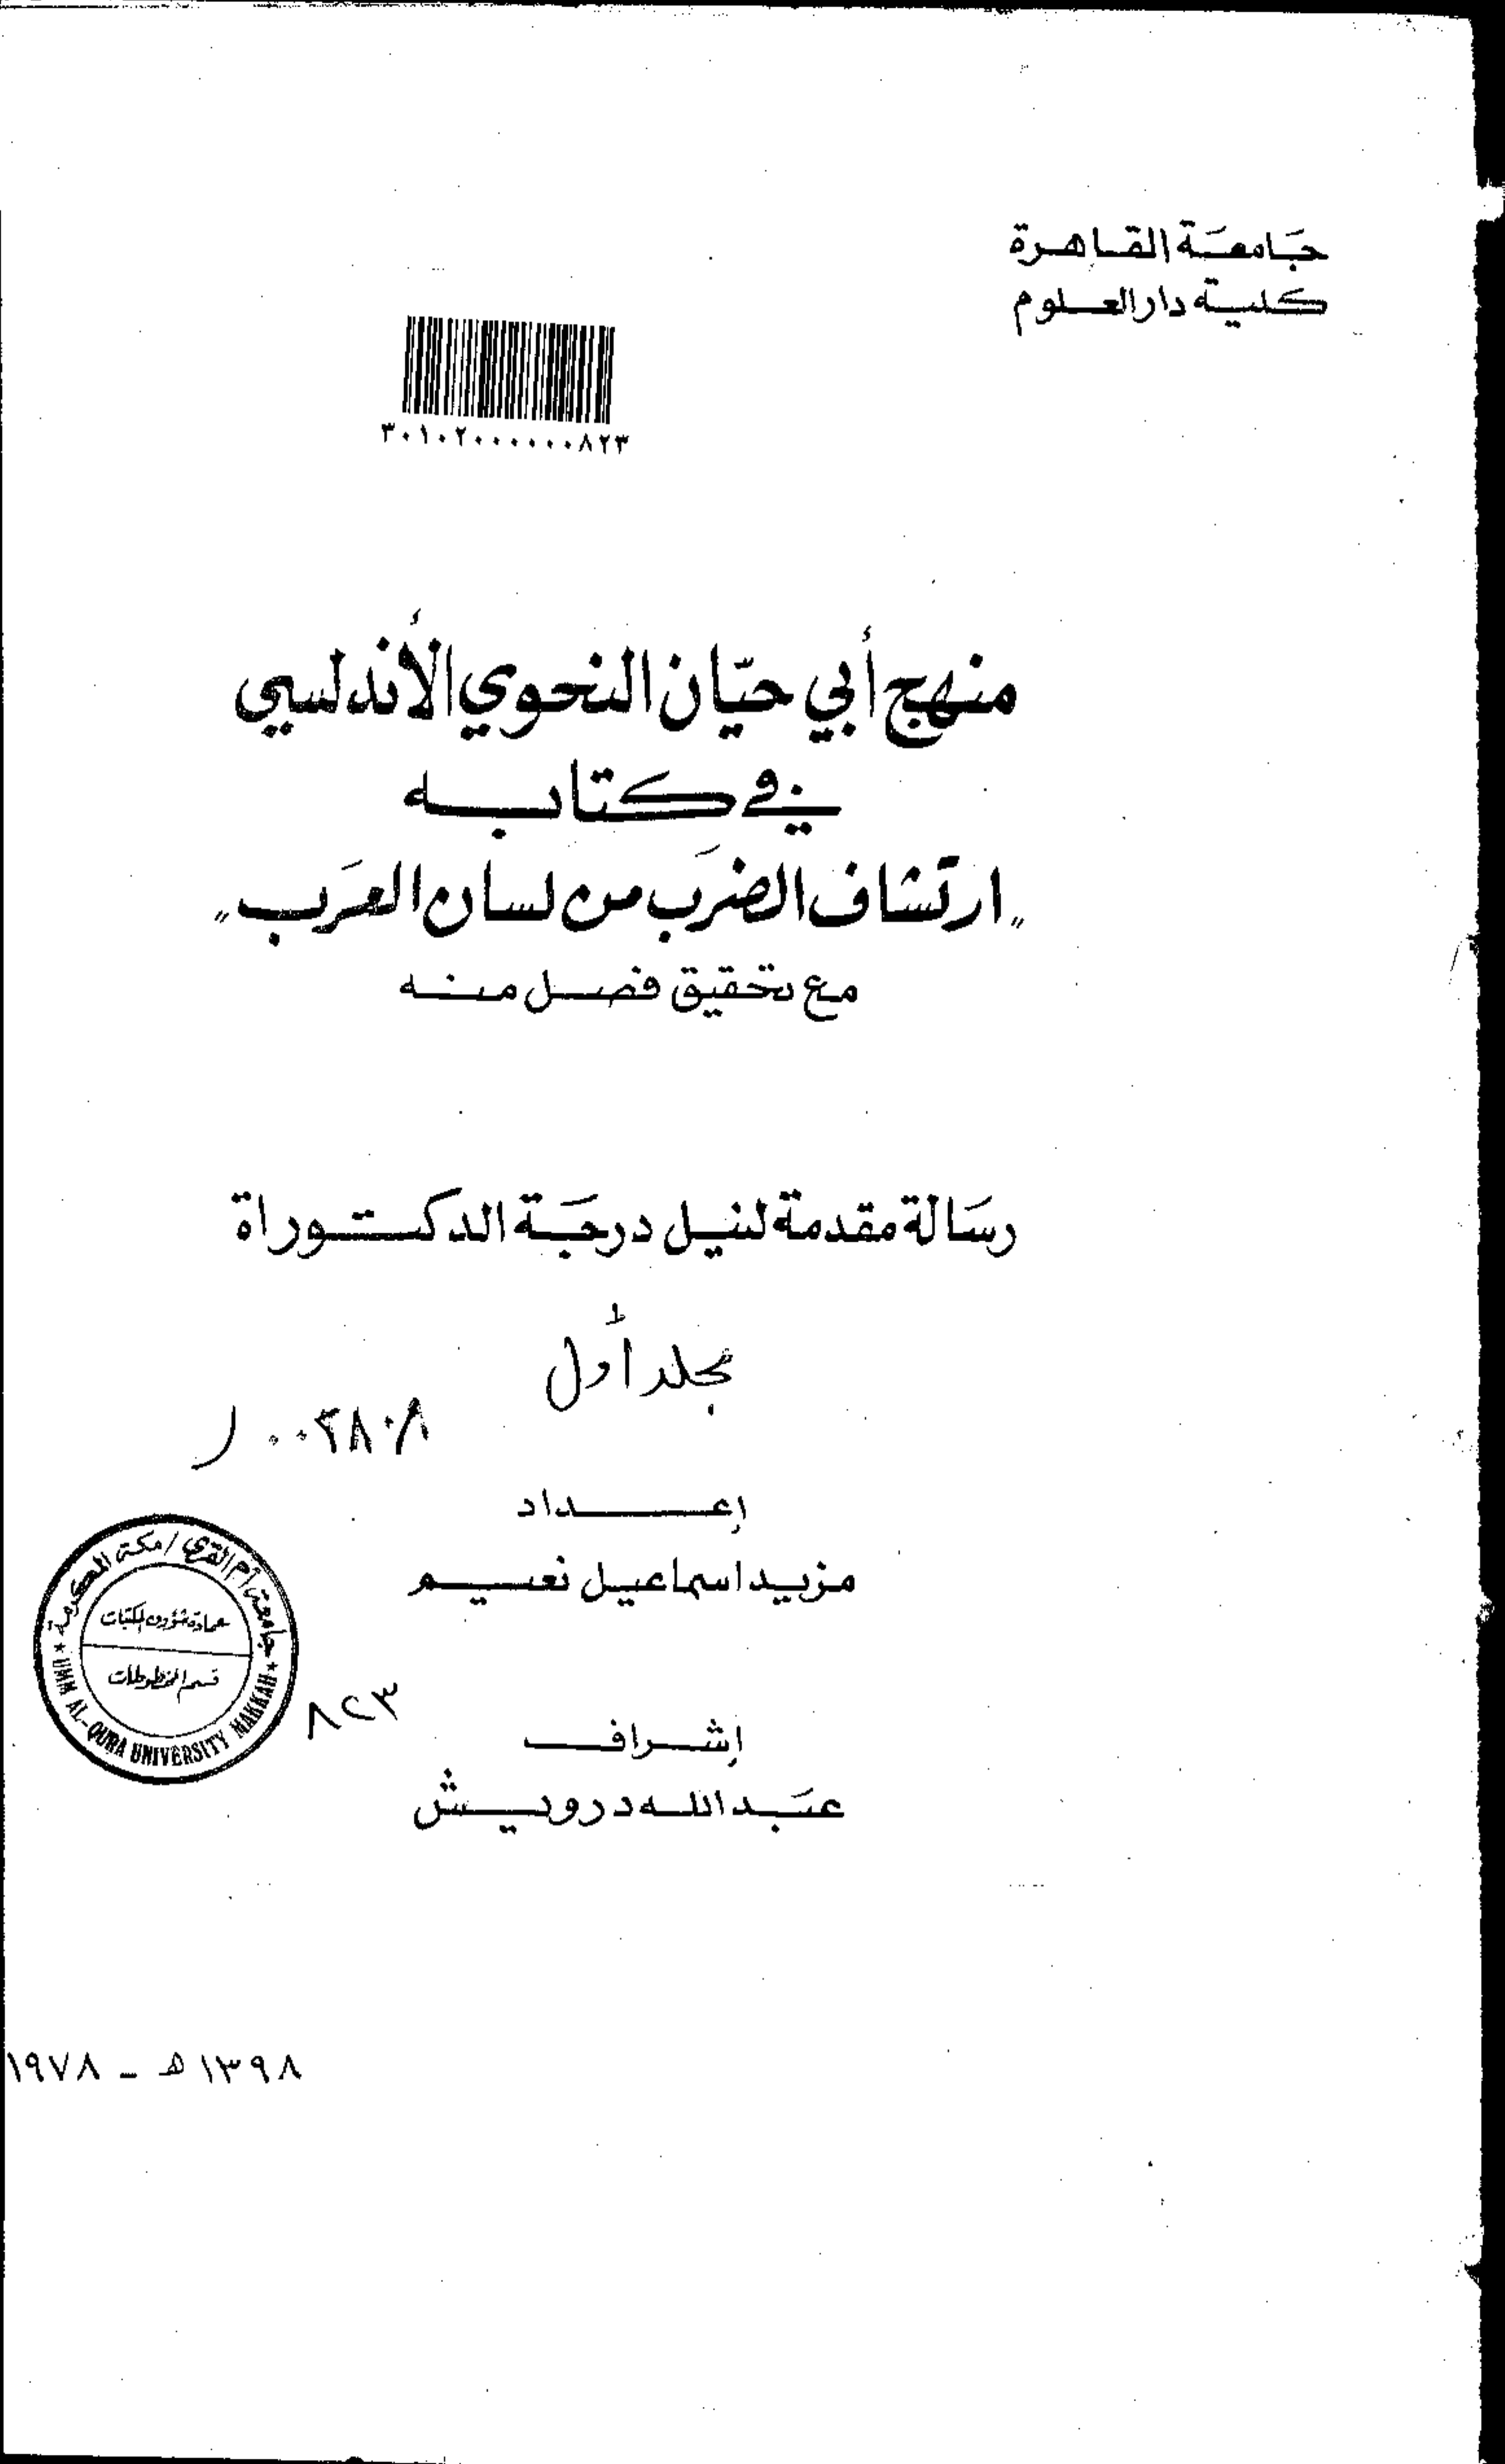 جَامعَة القاهرة
كلية دار العلوم
٣٠١٠٢٠٠٠٠٠٠٨٢٣
منهج أبي حيّان النحوي الأندلسي
في كتابه
"ارتشاف الضرَب من لسان العرَب"
مع تحقيق فصل منه
رسَالة مقدمة لنيل درجَة الدكتوراة
مجلد أول
إعداد
مزيد اسماعيل نعيم
جامعة أم القرى / مكة المكرمة
عمادة شؤون المكتبات
قسم المخطوطات
UMM AL-QURA UNIVERSITY MAKKAH
٨٢٣
إشراف
عبَد الله درويش
١٣٩٨ هـ - ١٩٧٨